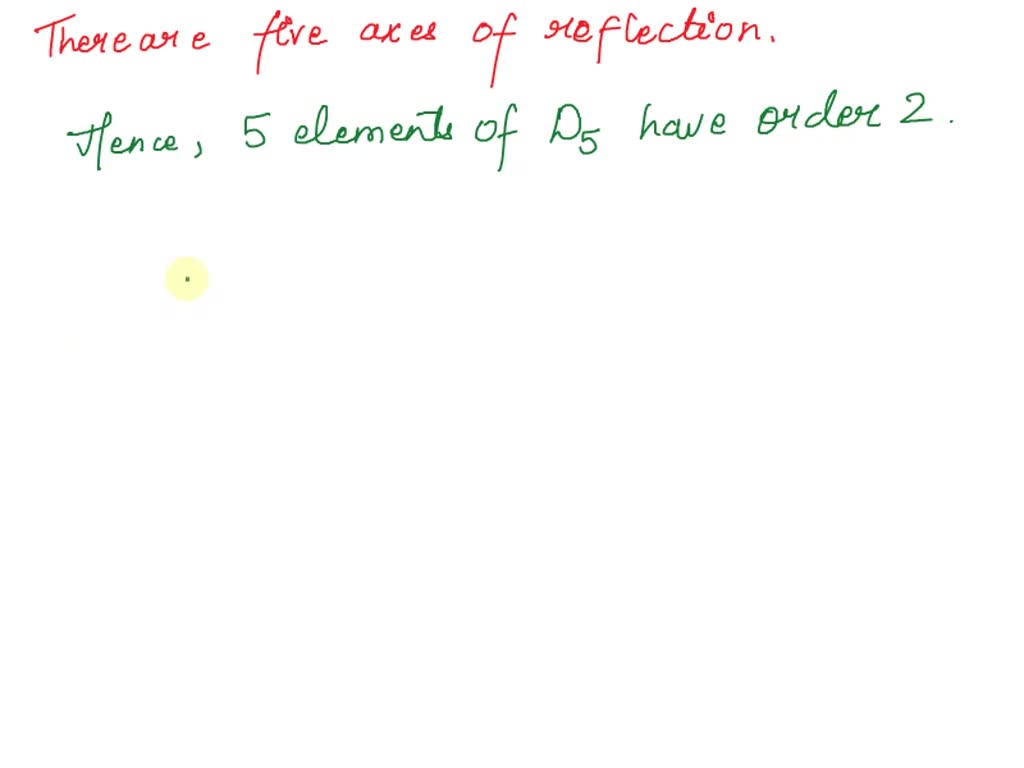 There are five axes of reflection.
Hence, 5 elements of D5 have order 2.